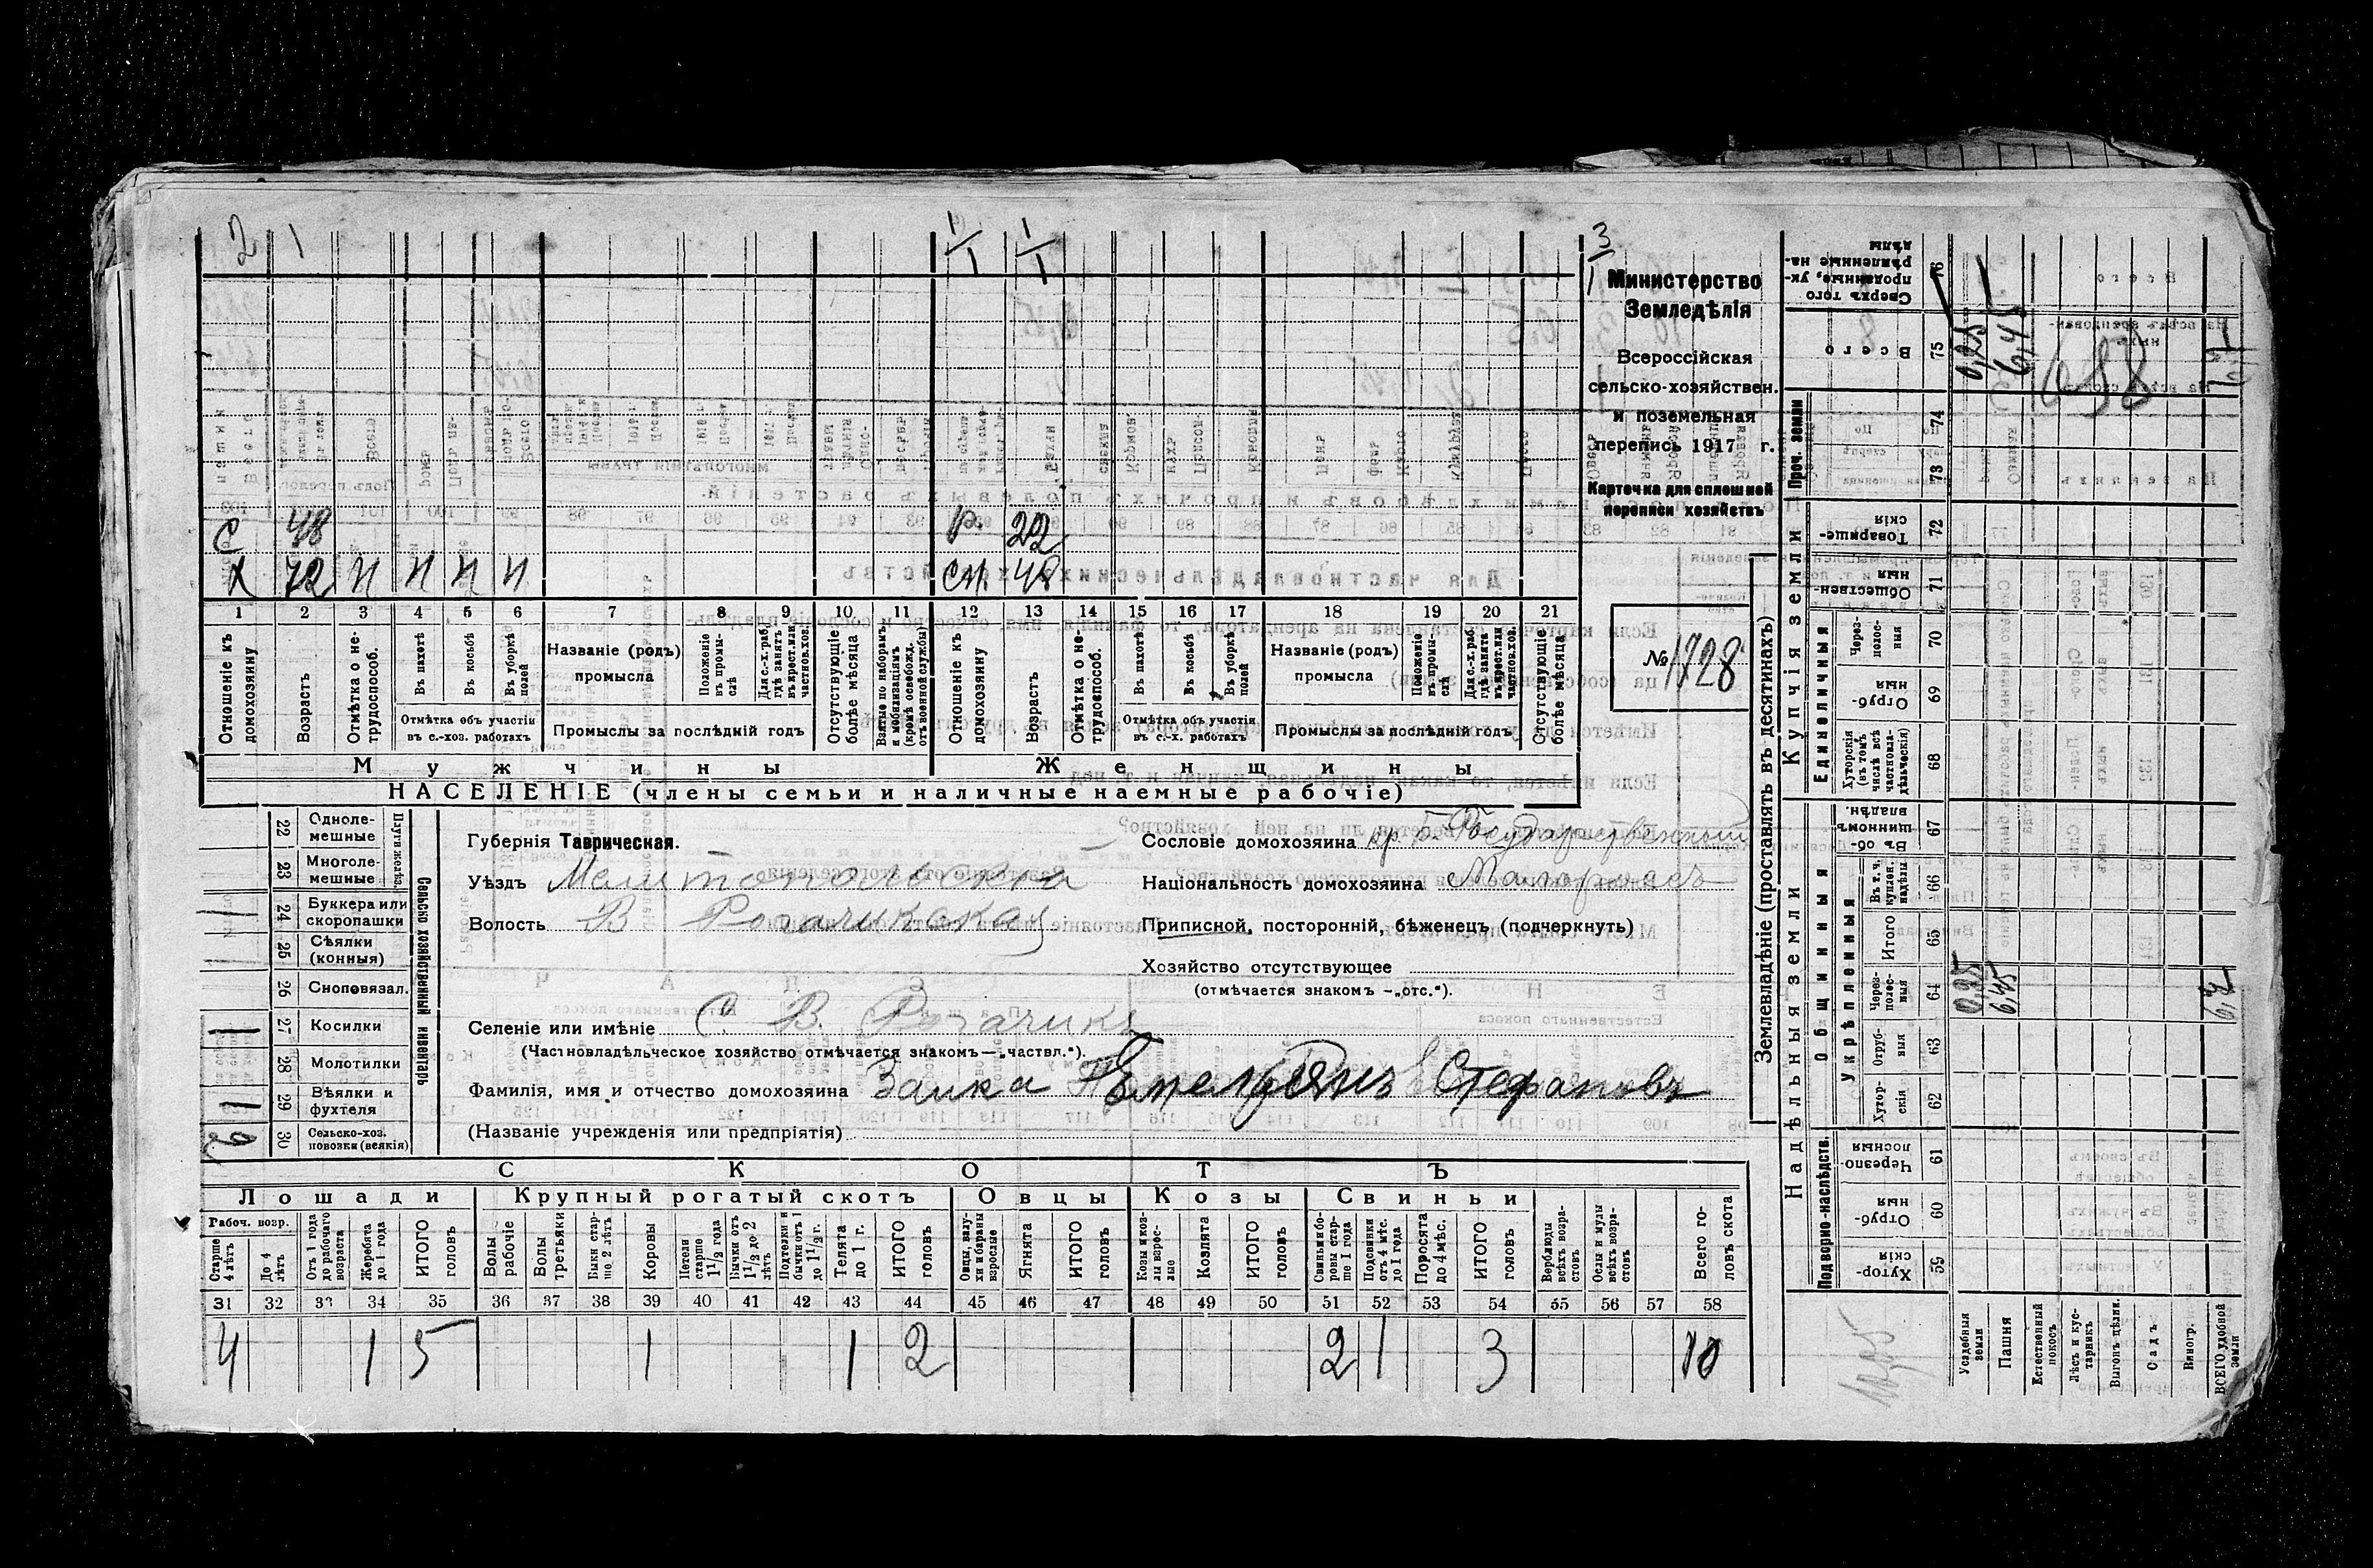 2 1 1/1 1/1
С 48 Р. 22
Х 72 Н Н Н Н СМ. 48
1 2 3 4 5 6 7 8 9 10 11 12 13 14 15 16 17 18 19 20 21
Отношеніе къ домохозяину
Возрастъ
Отмѣтка о не-трудоспособ.
Въ пахотѣ
Въ косьбѣ
Въ уборкѣ полей
Отмѣтка объ участіи въ с.-хоз. работахъ
Названіе (родъ) промысла
Положеніе въ промы-слѣ
Для с.-х. раб. гдѣ занятъ въ крест. или частнов. хоз.
Промыслы за послѣдній годъ
Отсутствующіе болѣе мѣсяца
Взятые по наборамъ и мобилизаціямъ (кромѣ освобожд. отъ военной службы)
Отношеніе къ домохозяину
Возрастъ
Отмѣтка о не-трудоспособ.
Въ пахотѣ
Въ косьбѣ
Въ уборкѣ полей
Отмѣтка объ участіи въ с.-х. работахъ
Названіе (родъ) промысла
Положеніе въ промы-слѣ
Для с.-х. раб. гдѣ занята въ крест. или частнов. хоз.
Промыслы за послѣдній годъ
Отсутствующіе болѣе мѣсяца
Мужчины Женщины
НАСЕЛЕНІЕ (члены семьи и наличные наемные рабочіе)
3/1
Министерство
Земледѣлія
Всероссійская
сельско-хозяйствен.
и поземельная
перепись 1917 г.
Карточка для сплошной
переписи хозяйствъ
№ 1728
Сельско хозяйственный инвентарь
Плуги желѣз.
22 Одноле-мешные
23 Многоле-мешные
1 24 Буккера или скоропашки
25 Сѣялки (конныя)
26 Сноповязал.
1 27 Косилки
28 Молотилки
1 29 Вѣялки и фухтеля
2 30 Сельско-хоз. повозки (всякія)
Губернія Таврическая.
Уѣздъ Мелитопольскій
Волость В Рогачикская
Селеніе или имѣніе С В. Рогачикъ
(Частновладѣльческое хозяйство отмѣчается знакомъ—„частвл.“).
Фамилія, имя и отчество домохозяина Заика Емельянъ Стефановъ
(Названіе учрежденія или предпріятія)
Сословіе домохозяина кр. б. Государственный
Національность домохозяина Малороссъ
Приписной, посторонній, бѣженец (подчеркнуть)
Хозяйство отсутствующее
(отмѣчается знакомъ –„отс.“).
СКОТЪ
Лошади Крупный рогатый скотъ Овцы Козы Свиньи
Рабоч. возр.
Старше 4 лѣтъ
До 4 лѣтъ
Отъ 1 года до рабочаго возраста
Жеребята до 1 года
ИТОГО головъ
Волы рабочіе
Волы третьяки
Быки стар-ше 2 лѣтъ
Коровы
Нетели старше 1 1/2 года
Бычки отъ 1 1/2 до 2 лѣтъ
Подтелки и бычки отъ 1 до 1 1/2 г.
Телята до 1 г.
ИТОГО головъ
Овцы, валу-хи и бараны взрослые
Ягнята
ИТОГО головъ
Козы и коз-лы взрос-лые
Козлята
ИТОГО головъ
Свиньи и бо-ровы стар-ше 1 года
Подсвинки отъ 4 мѣс. до 1 года
Поросята до 4 мѣс.
ИТОГО головъ
Верблюды всѣхъ возра-стовъ
Ослы и мулы всѣхъ возра-стовъ
Всего го-ловъ скота
31 32 33 34 35 36 37 38 39 40 41 42 43 44 45 46 47 48 49 50 51 52 53 54 55 56 57 58
4 1 5 1 1 2 2 1 3 10
Землевладѣніе (проставлять въ десятинахъ)
Надѣльныя земли Купчія земли
Подворно-наслѣдств. Общинныя Укрѣпленныя Единоличныя Проч. земли
59 Хутор-скія
60 Отруб-ныя
61 Черезпо-лосныя
62 Хутор-скія
63 Отруб-ныя
64 Через-полос-ныя 0,25 6,45
65 Итого
66 Въ т. ч. куплен. надѣлы
67 Въ об-щинномъ владѣн.
68 Хуторскія (въ томъ числѣ всѣ частновла-дѣльческія)
69 Отруб-ныя
70 Через-полос-ныя
71 Обществен-ныя
72 Товарище-скія
73
74
75 Всего 0,25 6,45
76 Сверхъ того проданные, ук-рѣпленные на-дѣлы
688
Усадебныя земли
Пашня
Естественный покосъ
Лѣсъ и кус-тарникъ
Выгонъ цѣлин.
Садъ
Виногр.
ВСЕГО удобной земли